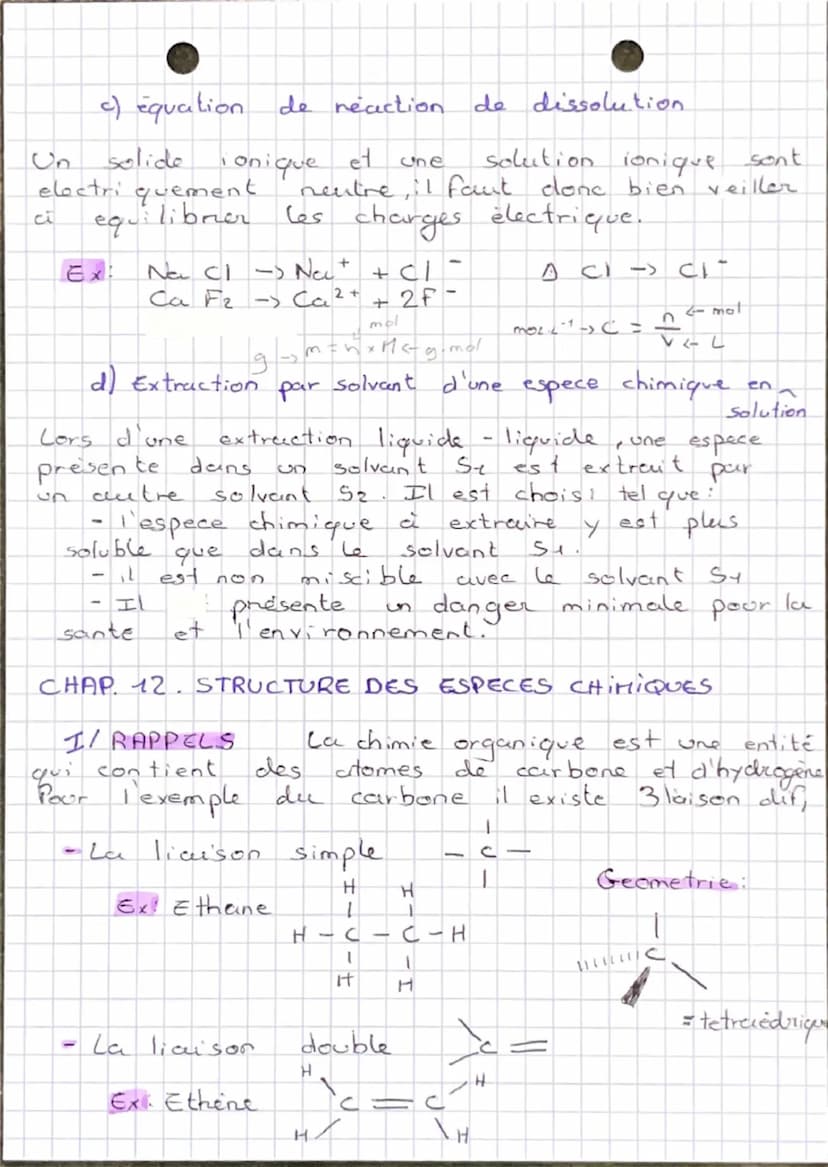 c) équation de réaction de dissolution
Un solide ionique et une solution ionique sont
electriquement neutre, il faut donc bien veiller
à equilibrer les charges électrique.
Ex: Na Cl -> Na+ + Cl - Δ Cl -> Cl -
Ca F2 -> Ca2+ + 2F -
mol.L-1 -> C = n/V <- mol <- L
mol
g -> m = n x M <- g.mol
d) Extraction par solvant d'une espece chimique en
solution
Lors d'une extraction liquide - liquide, une espece
présente dans un solvant S1 est extrait par
un autre solvant S2. Il est choisi tel que:
- l'espece chimique à extraire y est plus
soluble que dans le solvant S1.
- il est non miscible avec le solvant S1
- Il présente un danger minimale pour la
sante et l'environnement.
CHAP. 12. STRUCTURE DES ESPECES CHIMIQUES
I/ RAPPELS La chimie organique est une entité
qui contient des atomes de carbone et d'hydrogène
Pour l'exemple du carbone il existe 3 laison dif,
- La liaison simple - C -
Geometrie:
H H
Ex: Ethane
H - C - C - H
H H
C
= tetraédrique
- La liaison double C =
H H
Ex: Ethène C = C
H H